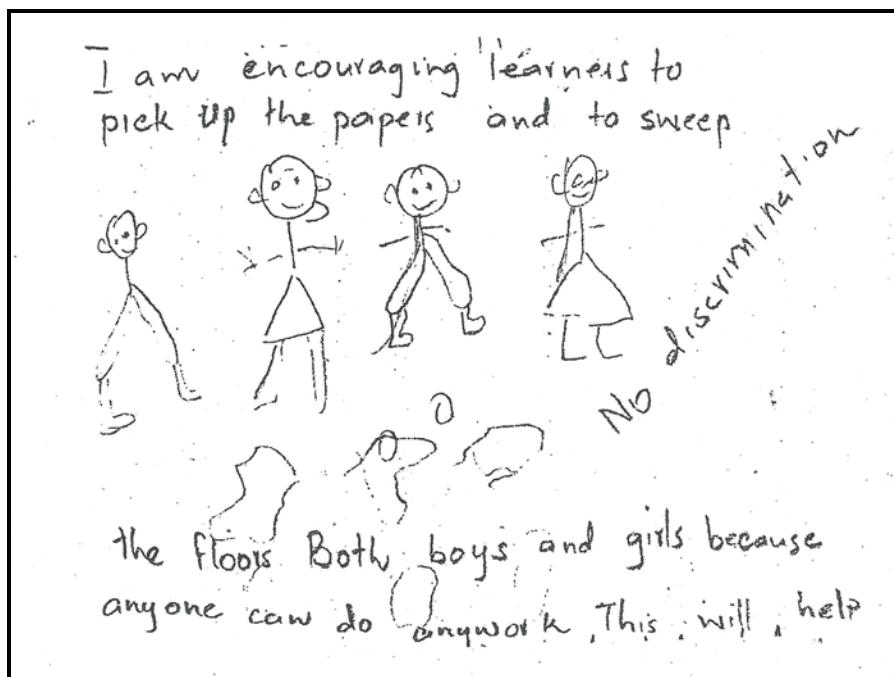 I am encouraging learners to
pick up the papers and to sweep
No discrimination
the floors Both boys and girls because
anyone can do anywork. This will help